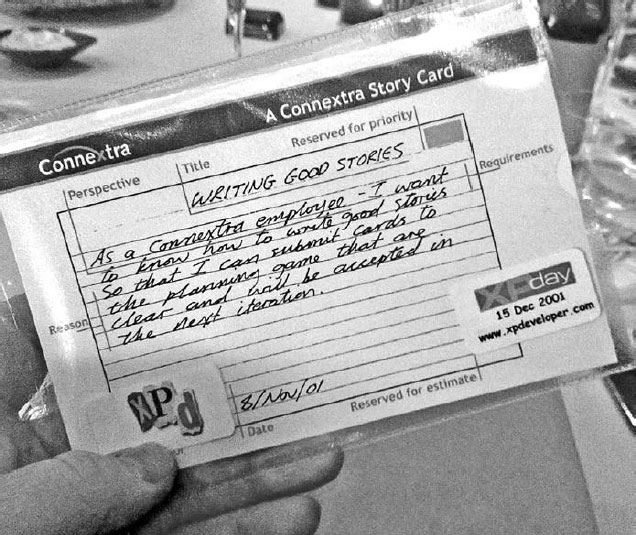 A Connextra Story Card
Connextra
Reserved for priority
Title
Perspective
WRITING GOOD STORIES
Requirements
As a Connextra employee - I want
to know how to write good stories
So that I can submit cards to
the planning game that are
clear and will be accepted in
the next iteration.
Reason
XPday
15 Dec 2001
www.xpdeveloper.com
xPd
8/Nov/01
Reserved for estimate
Date